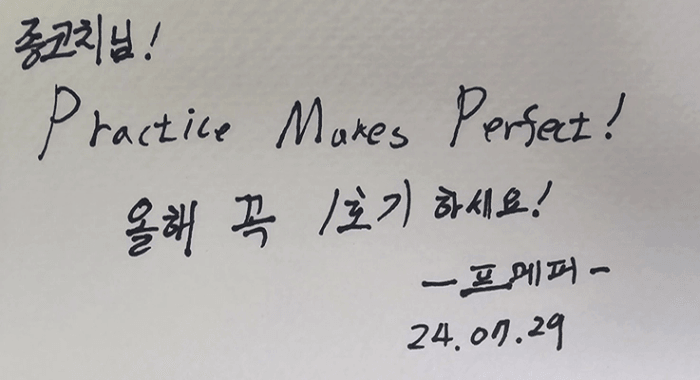 종코치님!
Practice Makes Perfect!
올해 꼭 1호기 하세요!
- 프메퍼 -
24.07.29